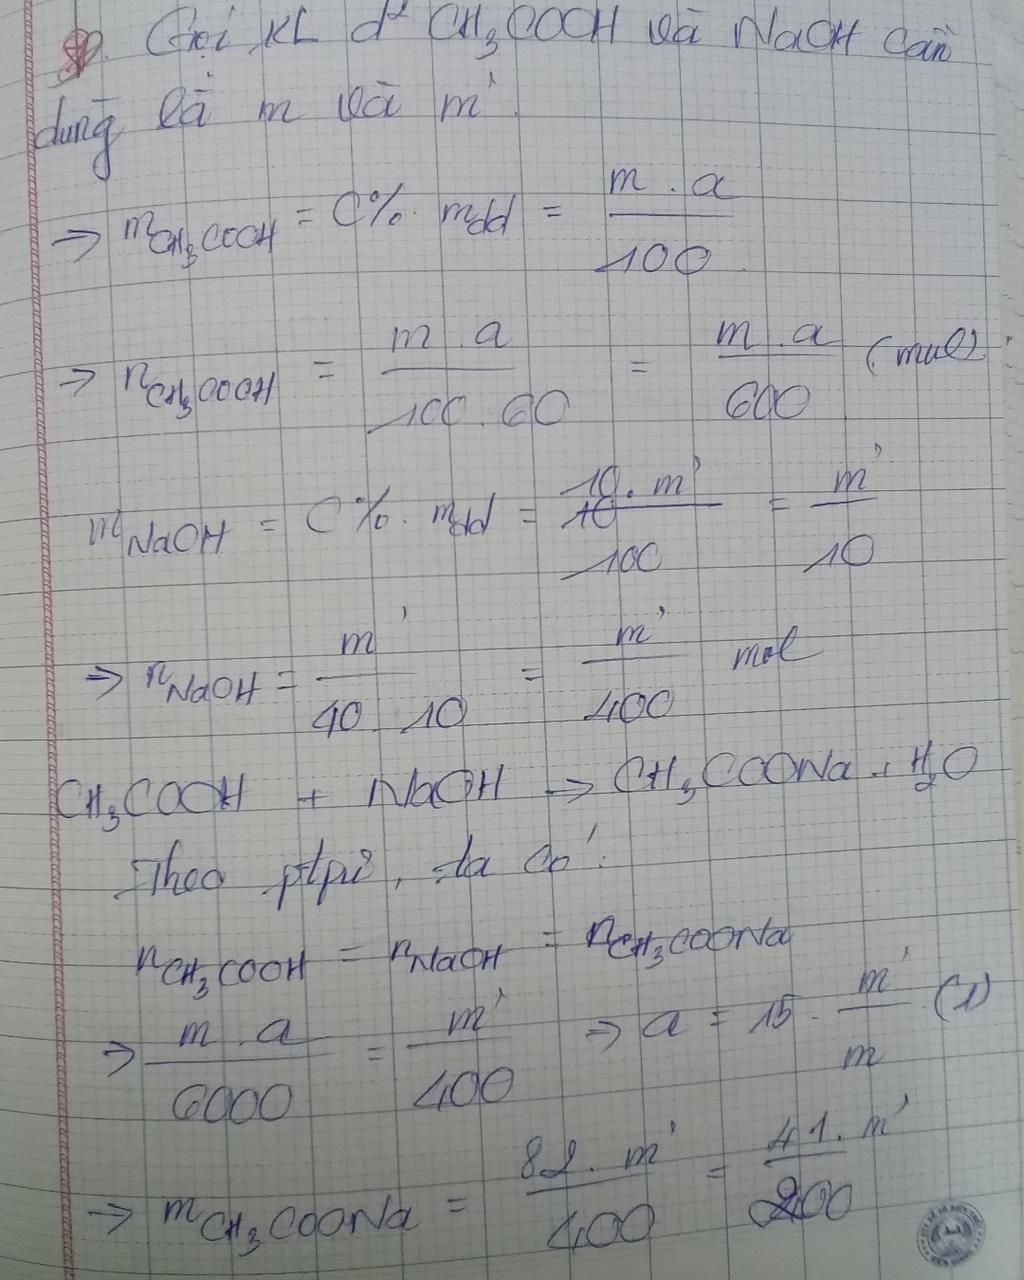 Gọi KL d² CH₃COOH và NaOH cần
dùng là m và m'.
=> mCH₃COOH = C%. mdd = m . a / 100
=> nCH₃COOH = m . a / 100 . 60 = m . a / 600 (mol)
mNaOH = C%. mdd = 10. m' / 100 = m' / 10
=> nNaOH = m' / 40 . 10 = m' / 400 mol
CH₃COOH + NaOH -> CH₃COONa + H₂O
Theo ptpứ, ta có:
nCH₃COOH = nNaOH = nCH₃COONa
=> m . a / 6000 = m' / 400 => a = 15 . m' / m (1)
=> mCH₃COONa = 82. m' / 400 = 41. m' / 200